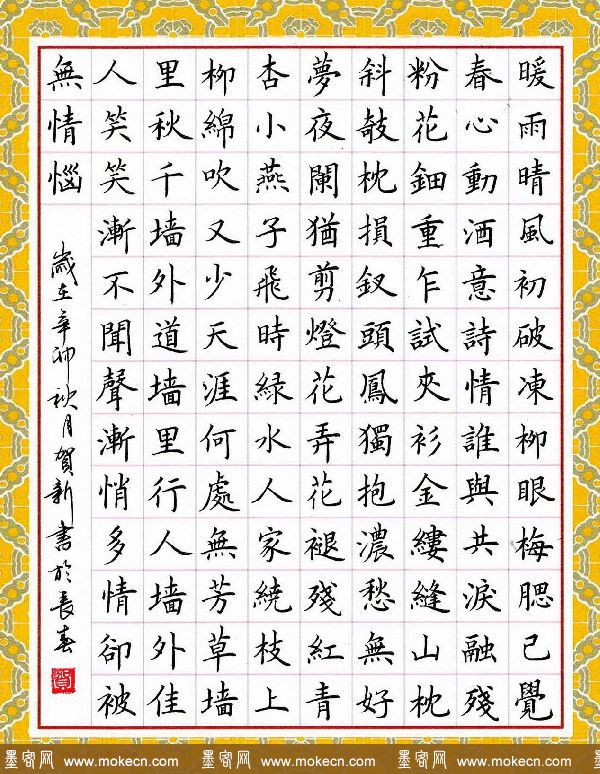 暖雨晴風初破凍柳眼梅腮已覺
春心動酒意詩情誰與共淚融殘
粉花鈿重乍試夾衫金縷縫山枕
斜攲枕損釵頭鳳獨抱濃愁無好
夢夜闌猶剪燈花弄花褪殘紅青
杏小燕子飛時綠水人家繞枝上
柳綿吹又少天涯何處無芳草墙
里秋千墙外道墙里行人墙外佳
人笑笑漸不聞聲漸悄多情卻被
無情惱
歲在辛卯秋月賀新書於長春
墨客网 www.mokecn.com 墨客网 www.mokecn.com 墨客网 www.mokecn.com